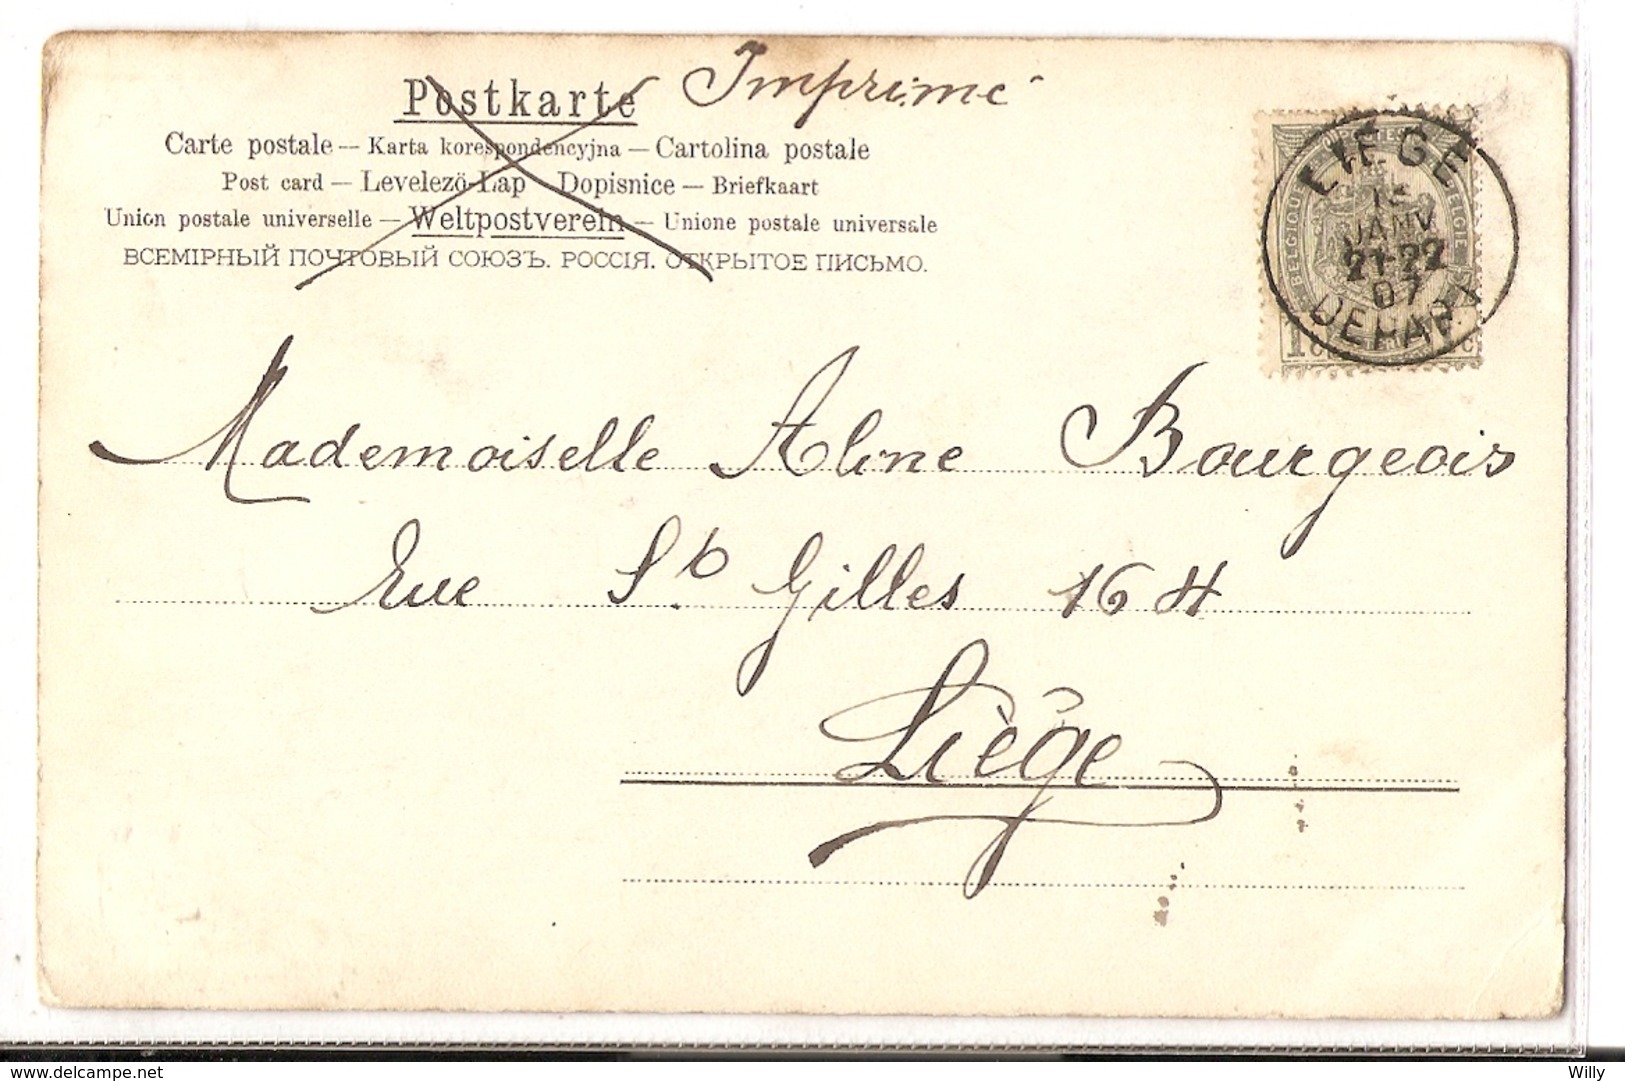 Postkarte Imprimé
Carte postale — Karta korespondencyjna — Cartolina postale
Post card — Levelező-Lap Dopisnice — Briefkaart
Union postale universelle — Weltpostverein — Unione postale universale
ВСЕМІРНЫЙ ПОЧТОВЫЙ СОЮЗЪ. РОССІЯ. ОТКРЫТОЕ ПИСЬМО.
LIÉGE
JANV
21-22
07
DEPART
POSTES
BELGIQUE BELGIE
1c
Mademoiselle Aline Bourgeois
Rue St Gilles 164
Liège
delcampe.net
Willy